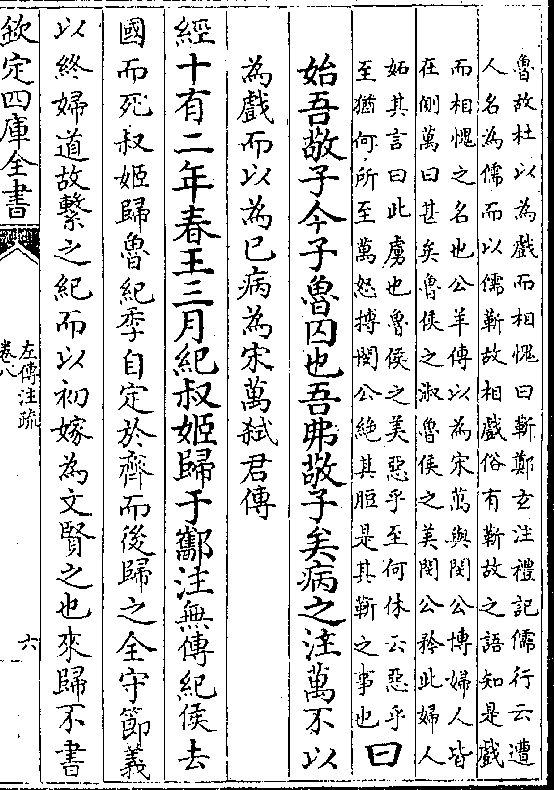 魯故杜以為戲而相愧曰靳鄭玄注禮記儒行云遭
人名為儒而以儒靳故相戲俗有靳故之語知是戲
而相愧之名也公羊傳以為宋萬與閔公博婦人皆
在側萬曰甚矣魯侯之淑魯侯之美閔公矜此婦人
妬其言曰此虜也魯侯之美惡乎至何休云惡乎
至猶何所至萬怒搏閔公絶其脰是其靳之事也曰
始吾敬子今子魯囚也吾弗敬子矣病之注萬不以
為戲而以為已病為宋萬弑君傳
經十有二年春王三月紀叔姬歸于酅注無傳紀侯去
國而死叔姬歸魯紀季自定於齊而後歸之全守節義
以終婦道故繫之紀而以初嫁為文賢之也來歸不書
欽定四庫全書
左傳注疏
卷八
六